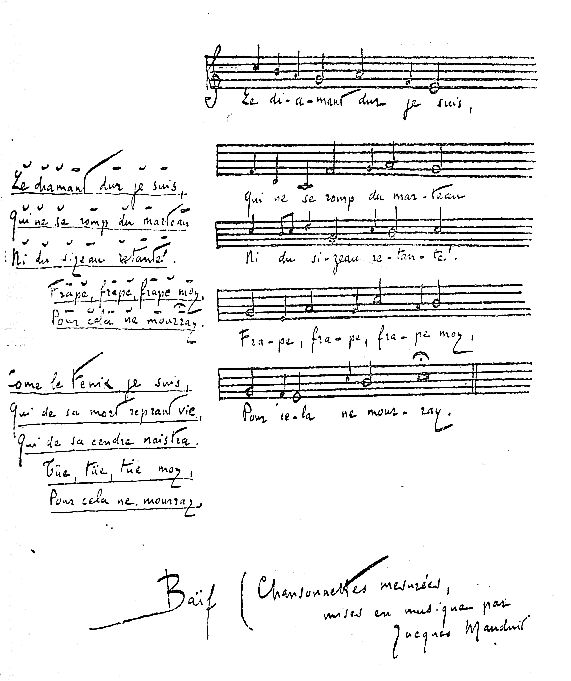 Le di-a-mant dur je suis,
Qui ne se romp du mar-teau
Ni du si-zeau re-ten-té.
Fra-pe, fra-pe, fra-pe moy,
Pour ce-la ne mour-ray.
Le diamant dur je suis,
Qui ne se romp du marteau
Ni du sizeau retanté.
Frape, frape, frape moy,
Pour cela ne mourray.
Come le Fenix je suis,
Qui de sa mort reprant vie,
Qui de sa cendre naistra.
Tüe, tüe, tüe moy,
Pour cela ne mourray,
Baïf (Chansonnettes mesurées,
mises en musique par
Jacques Mauduit